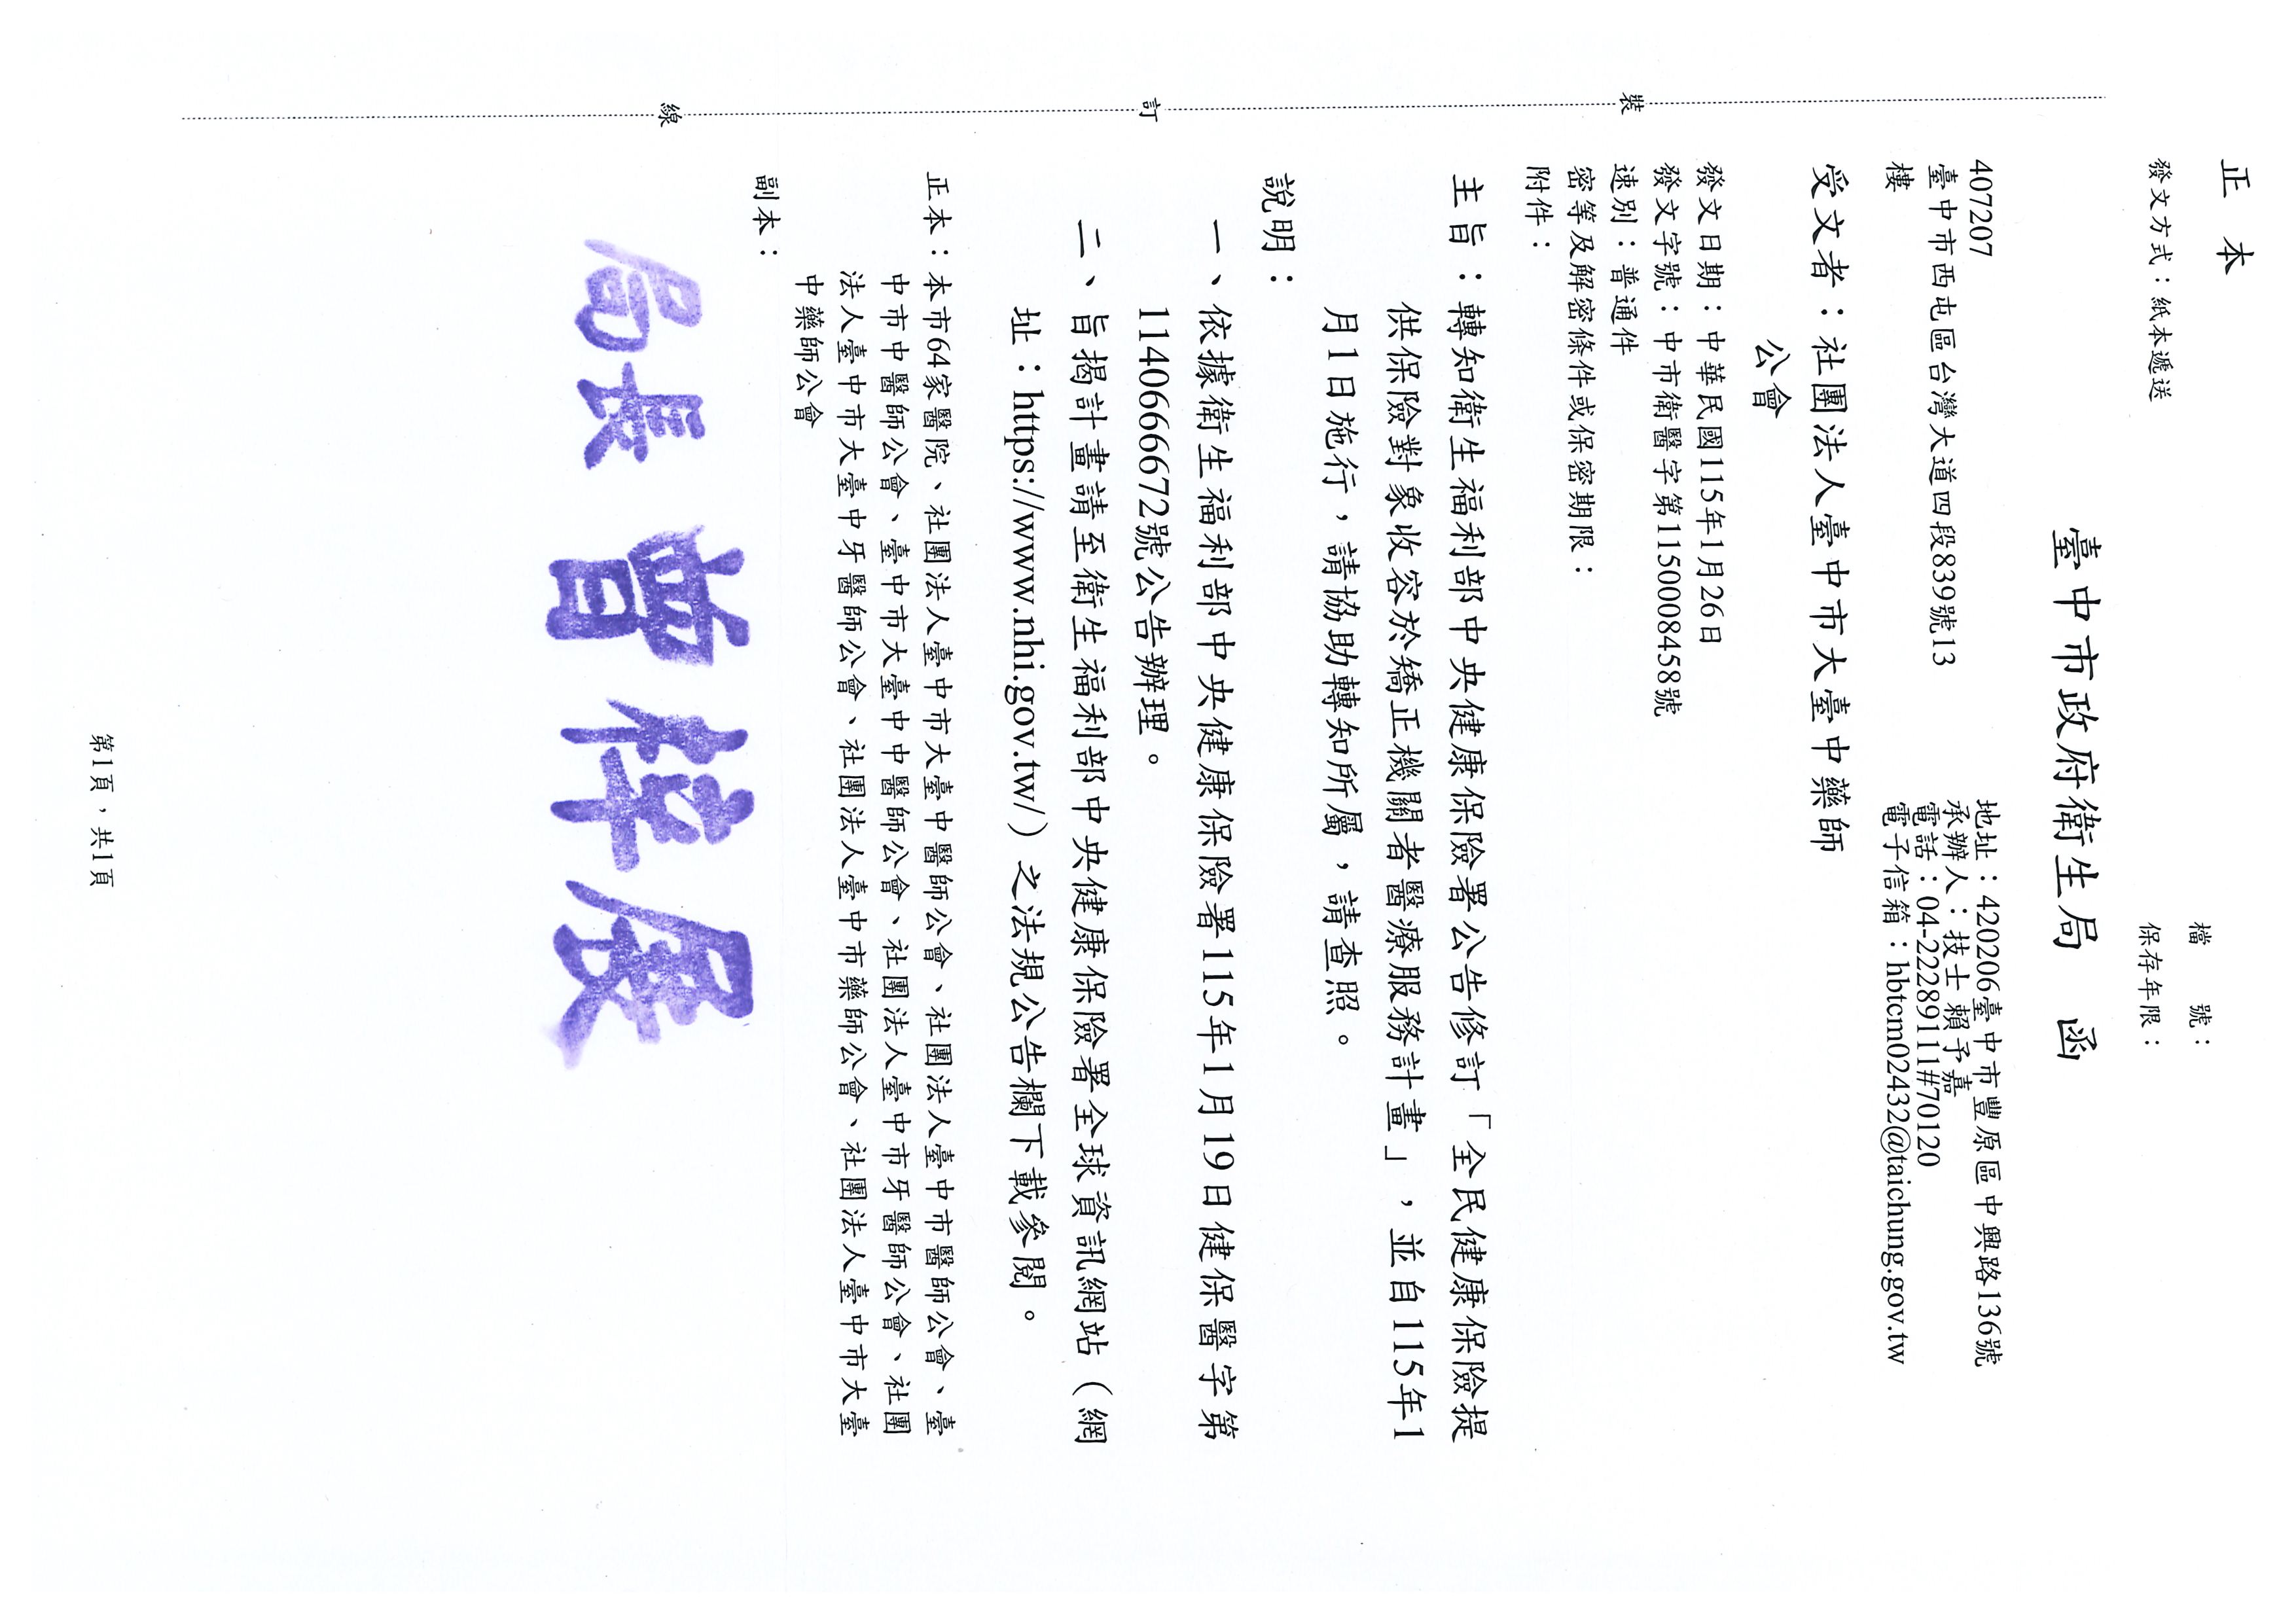 正本
檔　　號：
保存年限：
發文方式：紙本遞送
臺中市政府衛生局　函
407207
臺中市西屯區台灣大道四段839號13
樓
地址：420206臺中市豐原區中興路136號
承辦人：技士 賴予嘉
電話：04-22289111#70120
電子信箱：hbtcm02432@taichung.gov.tw
受文者：社團法人臺中市大臺中藥師
公會
發文日期：中華民國115年1月26日
發文字號：中市衛醫字第1150008458號
速別：普通件
密等及解密條件或保密期限：
附件：
主旨：轉知衛生福利部中央健康保險署公告修訂「全民健康保險提
供保險對象收容於矯正機關者醫療服務計畫」，並自115年1
月1日施行，請協助轉知所屬，請查照。
說明：
一、依據衛生福利部中央健康保險署115年1月19日健保醫字第
1140666672號公告辦理。
二、旨揭計畫請至衛生福利部中央健康保險署全球資訊網站（網
址：https://www.nhi.gov.tw/）之法規公告欄下載參閱。
正本：本市64家醫院、社團法人臺中市大臺中醫師公會、社團法人臺中市醫師公會、臺
中市中醫師公會、臺中市大臺中中醫師公會、社團法人臺中市牙醫師公會、社團
法人臺中市大臺中牙醫師公會、社團法人臺中市藥師公會、社團法人臺中市大臺
中藥師公會
副本：
局長 曾梓展
裝
訂
線
第1頁，共1頁